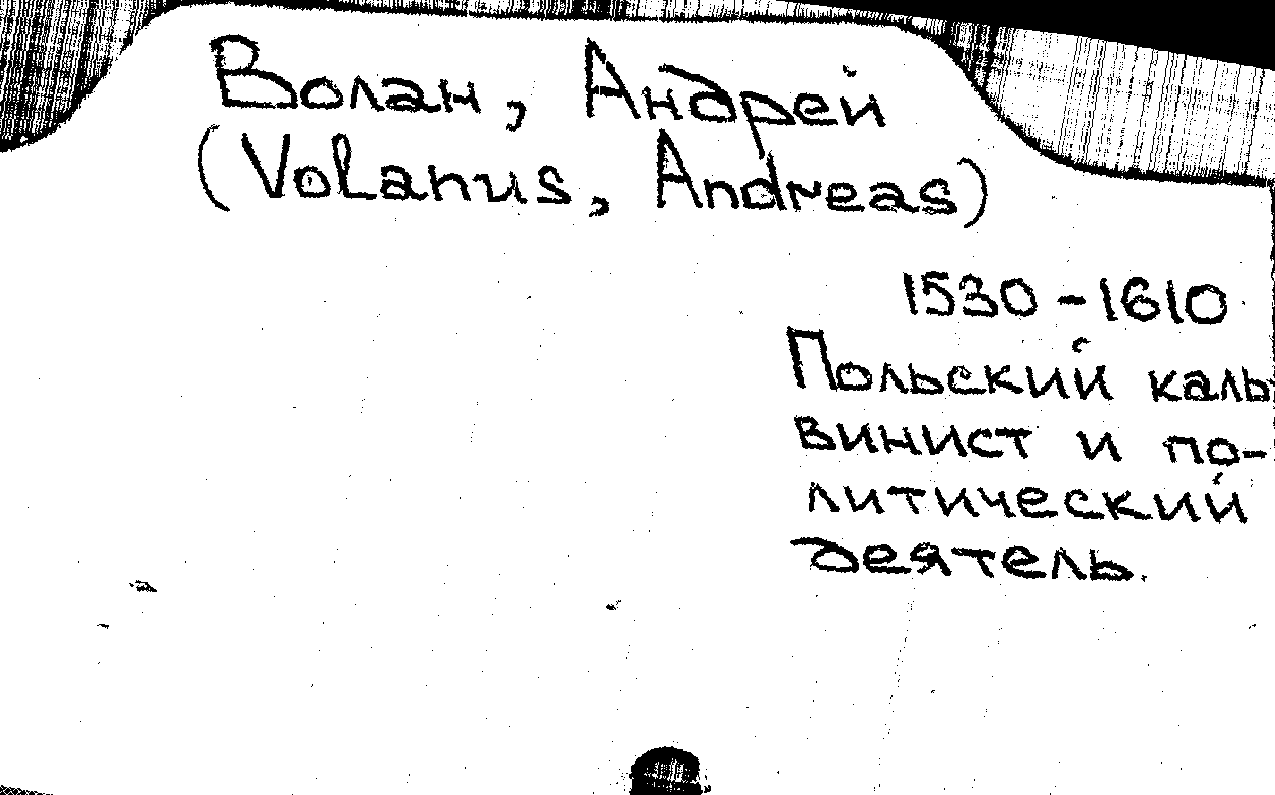 Волан, Андрей
(Volanus, Andreas)
1530-1610
Польский каль
винист и по-
литический
деятель.